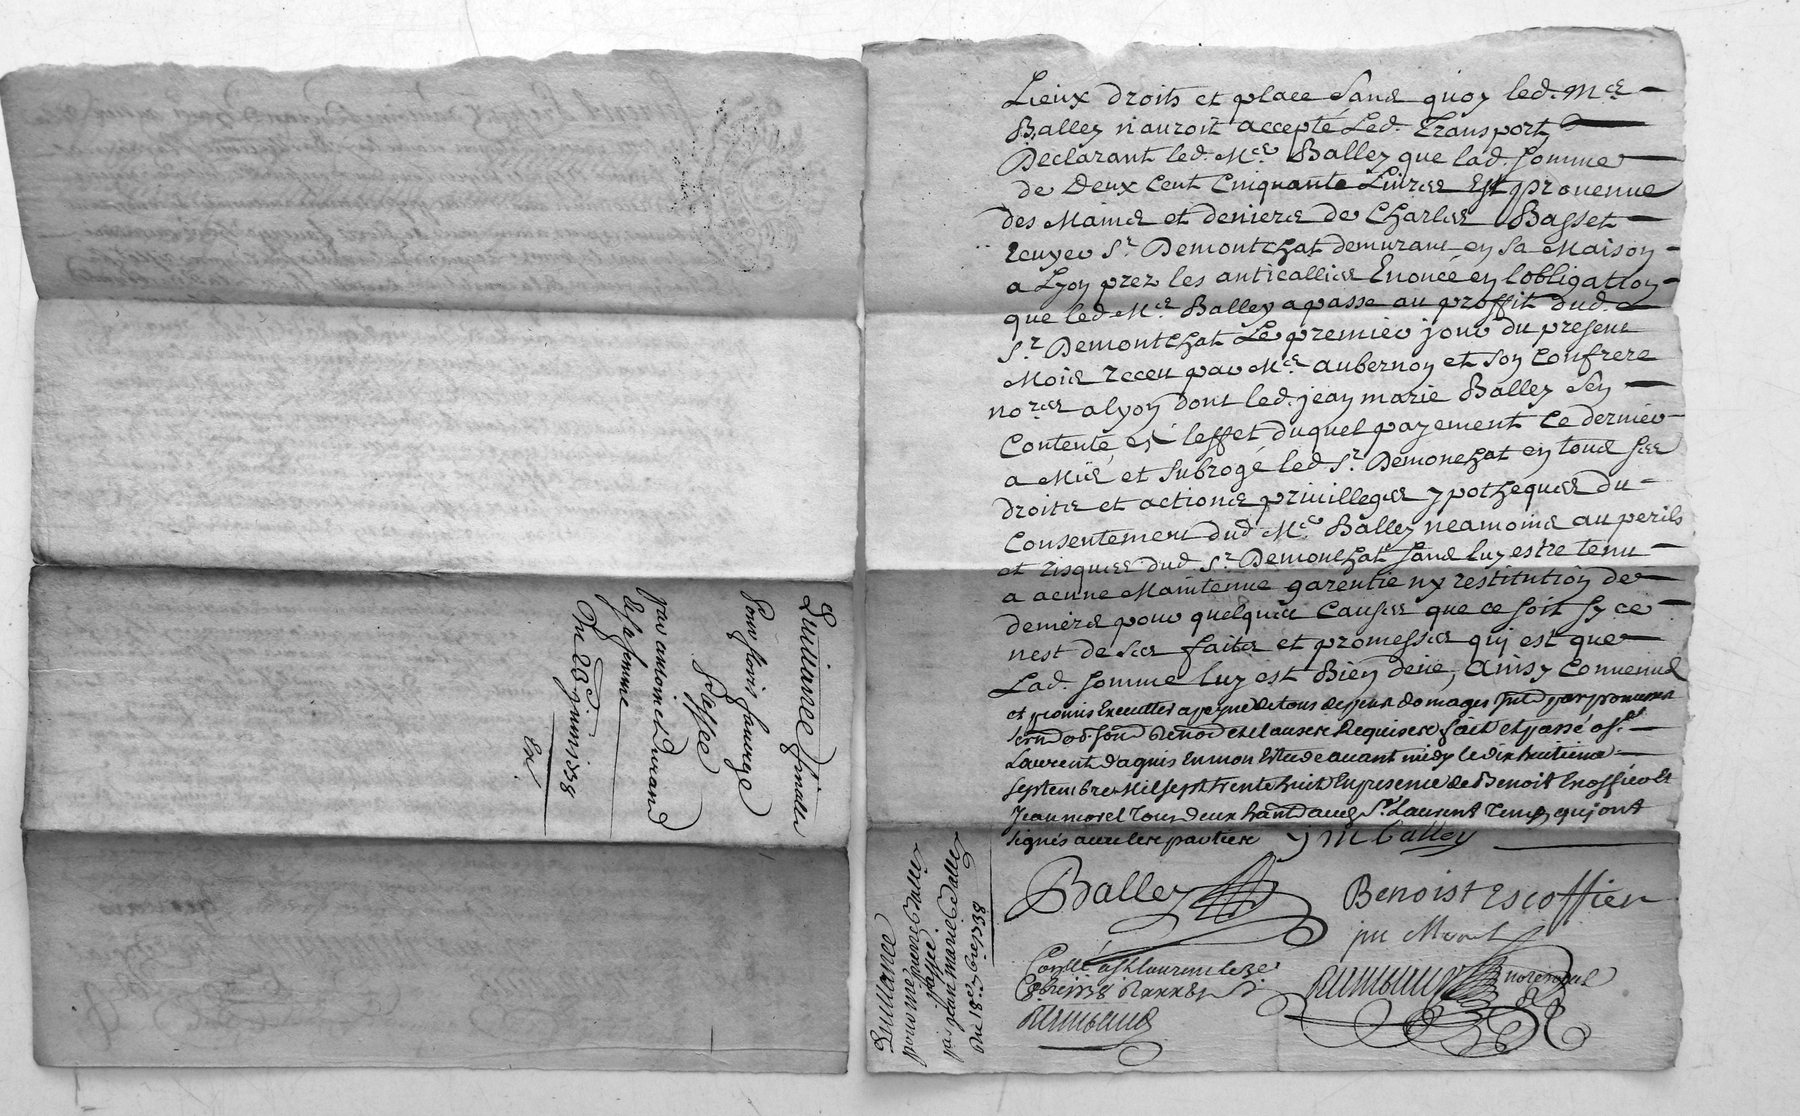 Quittance finalle
Pour floris fauverge
Passée
par antoine Durand
& sa femme
Du 28e juin 1738
Lieux droits et place sans quoy led. Mre
Balley n'auroit accepté Led. Transport
Declarant led. Mre Balley que lad. somme
de Deux Cent Cinquante Livres Est provenue
des Mains et deniers de Charles Basset
Ecuyer Sr. Demontchat demurant en sa Maison
a Lyon prez les anticalles Enoncé en lobligation
que led. Mre Balley a passe au proffit dud.
Sr. Demontchat Le premier jour du present
Mois receu par Mre aubernon et son Confrere
nores a lyon dont led. jean marie Balley sen
Contente, et leffet duquel payement Ce dernier
a Mis et subrogé led. Sr. Demonchat en tous ses
droits et actions privilleges ypotheques du
Consentement dud. Mre Balley neamoins au perils
et risques dud. Sr. Demonchat sans luy estre tenu
a acune Maintenue garentie ny restitution de
deniers pour quelques Causes que ce soit sy ce
nest de ses faits et promesses qui est que
Lad. somme luy est Bien deüe, Ainsy Convenus
et promis Executter a peyne de tous despens domages
clauses Requises fait et passé a St
Laurent d'agnis En mon Estude avant midy le dix huitieme
septembre Mil sept trente huit En presence de Benoit Escoffier Et
Jean morel Tous deux hants aud. St Laurent Tems. qui ont
signés avec les parties J M Balley
Balley
Benoist Escoffier
Morel
nore royal
Quittance
pour me pierre Balley
Passée
par jean marie Balley
Du 18e 7bre 1738
Conllé a St laurent le
8bre 1738